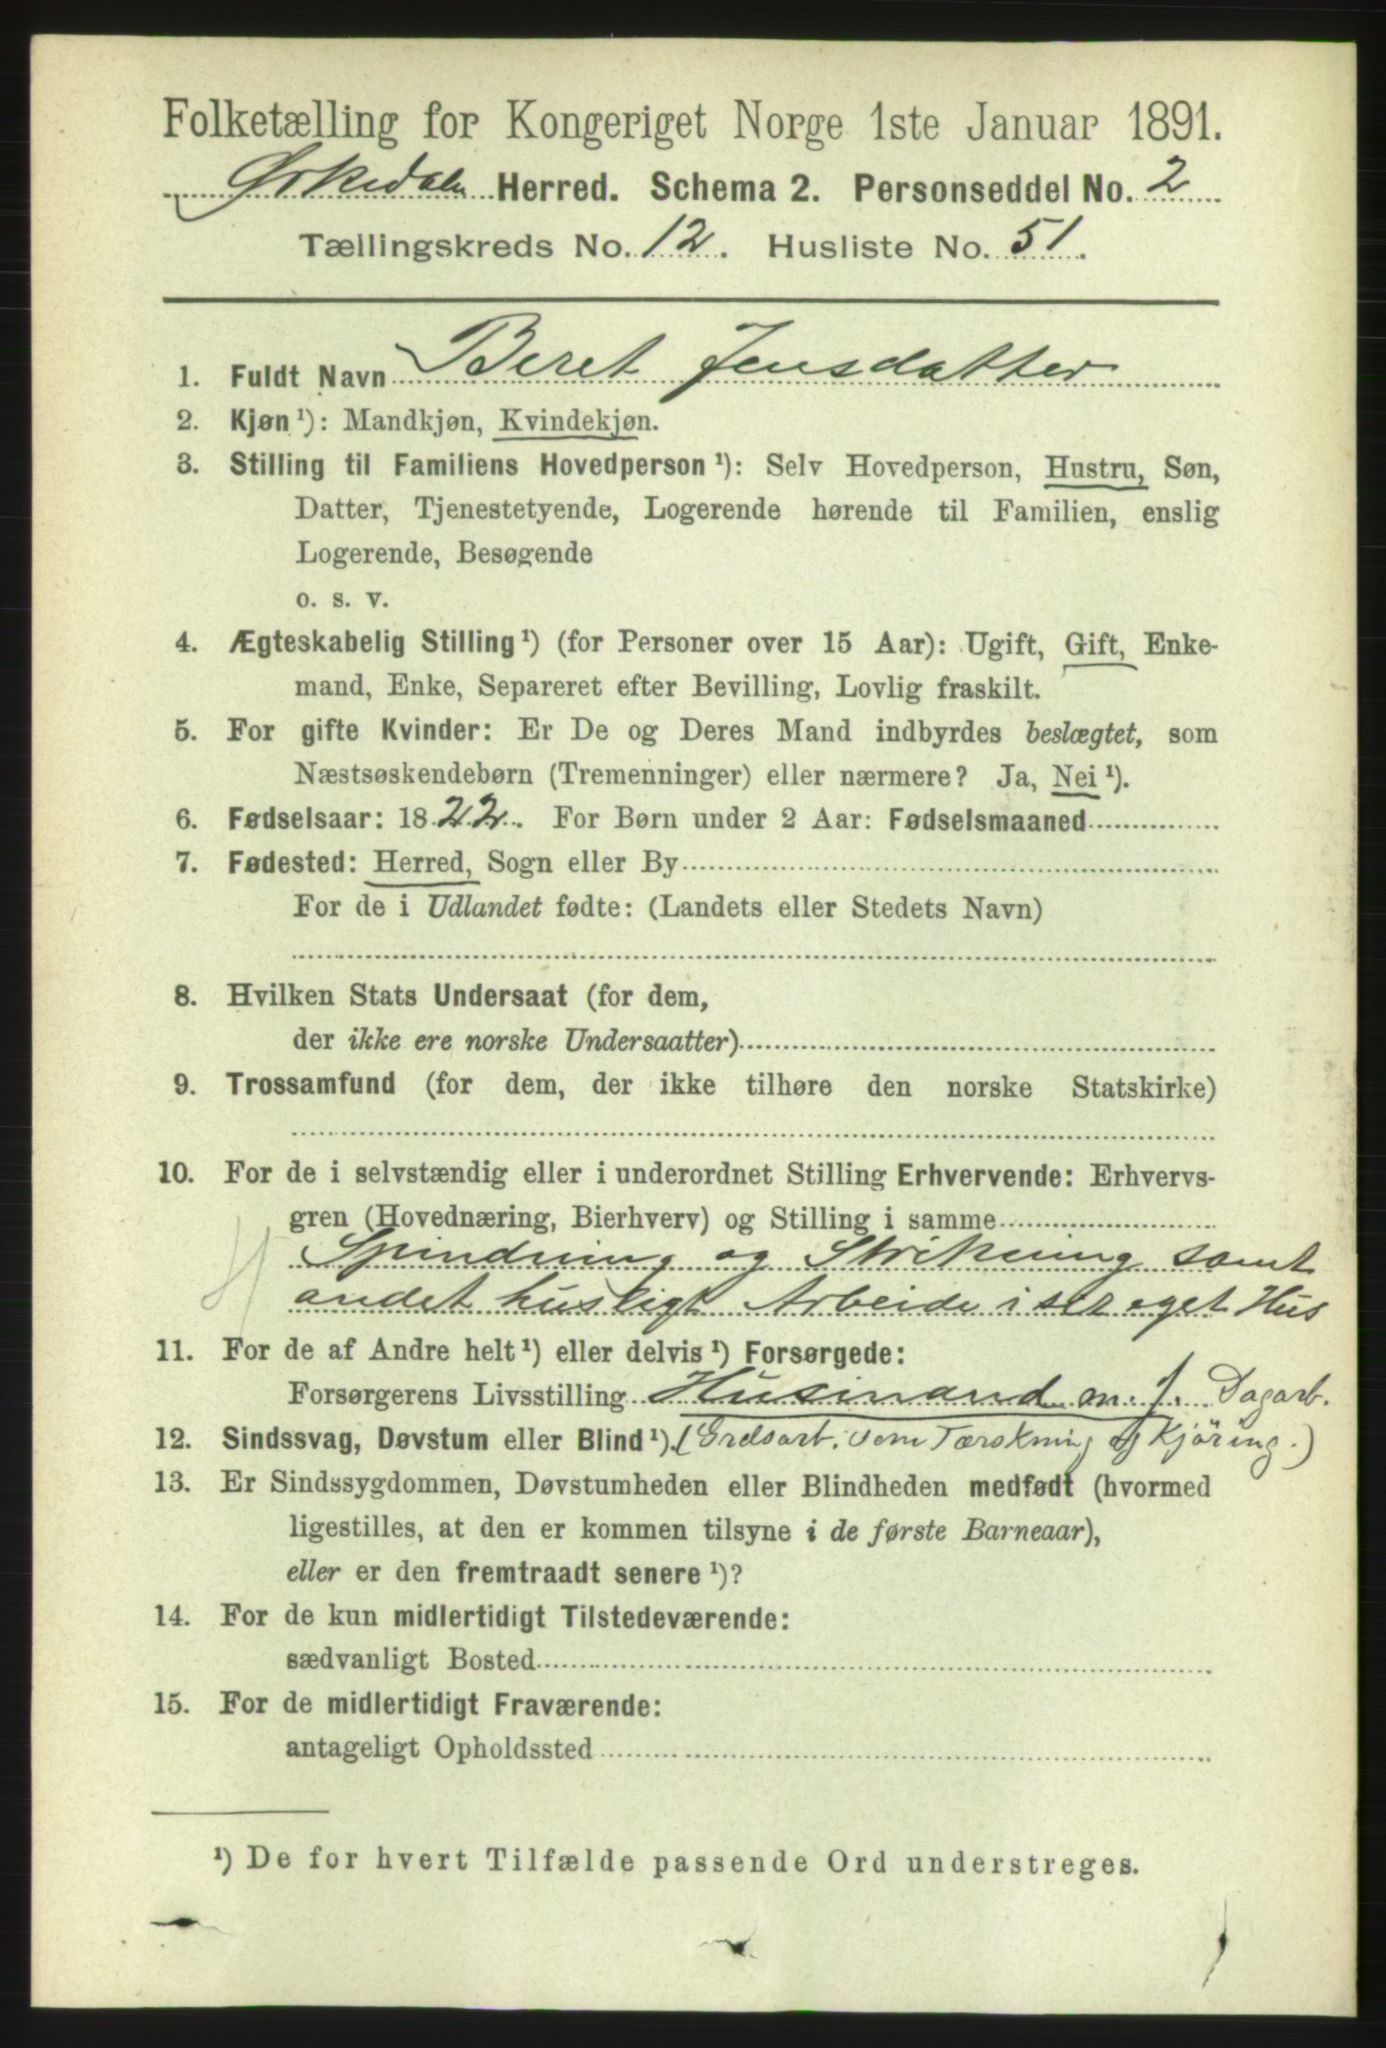 Folketælling for Kongeriget Norge 1ste Januar 1891.
Ørkedalen Herred. Schema 2. Personseddel No. 2
Tællingskreds No. 12. Husliste No. 51.
1. Fuldt Navn Beret Jensdatter
2. Kjøn ¹): Mandkjøn, Kvindekjøn.
3. Stilling til Familiens Hovedperson ¹): Selv Hovedperson, Hustru, Søn,
Datter, Tjenestetyende, Logerende hørende til Familien, enslig
Logerende, Besøgende
o. s. v.
4. Ægteskabelig Stilling ¹) (for Personer over 15 Aar): Ugift, Gift, Enke-
mand, Enke, Separeret efter Bevilling, Lovlig fraskilt.
5. For gifte Kvinder: Er De og Deres Mand indbyrdes beslægtet, som
Næstsøskendebørn (Tremenninger) eller nærmere? Ja, Nei ¹).
6. Fødselsaar: 1822. For Børn under 2 Aar: Fødselsmaaned
7. Fødested: Herred, Sogn eller By
For de i Udlandet fødte: (Landets eller Stedets Navn)
8. Hvilken Stats Undersaat (for dem,
der ikke ere norske Undersaatter)
9. Trossamfund (for dem, der ikke tilhøre den norske Statskirke)
10. For de i selvstændig eller i underordnet Stilling Erhvervende: Erhvervs-
gren (Hovednæring, Bierhverv) og Stilling i samme
Spinduing og Strikning samt
andet husligt Arbeide i sit eget Hus
11. For de af Andre helt ¹) eller delvis ¹) Forsørgede:
Forsørgerens Livsstilling Husmand m. J. Dagarb.
12. Sindssvag, Døvstum eller Blind ¹). som Tærskning og Kjøring.)
13. Er Sindssygdommen, Døvstumheden eller Blindheden medfødt (hvormed
ligestilles, at den er kommen tilsyne i de første Barneaar),
eller er den fremtraadt senere ¹)?
14. For de kun midlertidigt Tilstedeværende:
sædvanligt Bosted
15. For de midlertidigt Fraværende:
antageligt Opholdssted
¹) De for hvert Tilfælde passende Ord understreges.